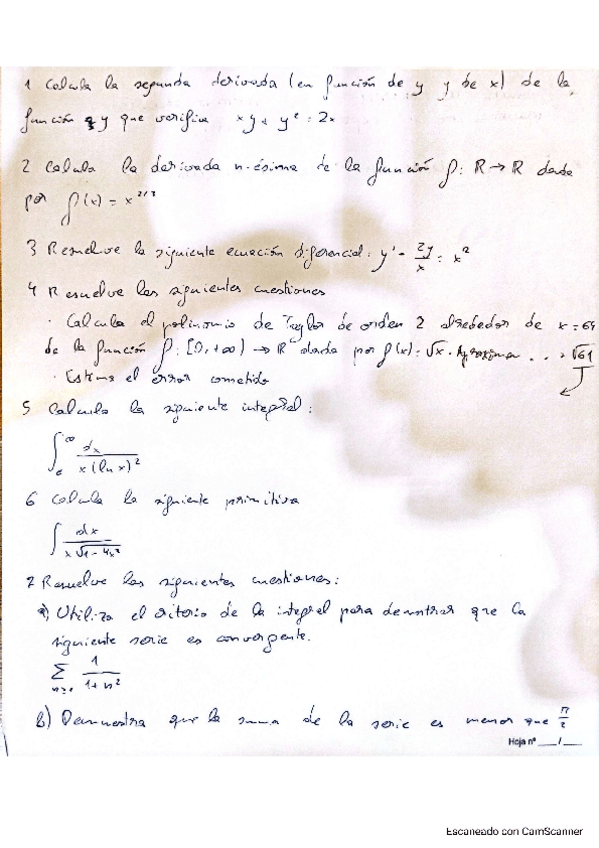 1 Calcula la segunda derivada (en función de y y de x) de la
función y que verifica xy + y² = 2x
2 Calcula la derivada n-ésima de la función f: R → R dada
por f(x) = x^2/3
3 Resuelve la siguiente ecuación diferencial: y' - 2y/x = x²
4 Resuelve las siguientes cuestiones
· Calcula el polinomio de Taylor de orden 2 alrededor de x = 64
de la función f: [0, +∞) → R dada por f(x) = √x · Aproximar ... √61
· Estima el error cometido
5 Calcula la siguiente integral:
∫ ∞ dx / x(ln x)²
6 Calcula la siguiente primitiva
∫ dx / x√1-4x²
7 Resuelve las siguientes cuestiones:
a) Utiliza el criterio de la integral para demostrar que la
siguiente serie es convergente.
∑ 1 / 1+n²
b) Demuestra que la suma de la serie es menor que π/2
Hoja nº ___/___
Escaneado con CamScanner